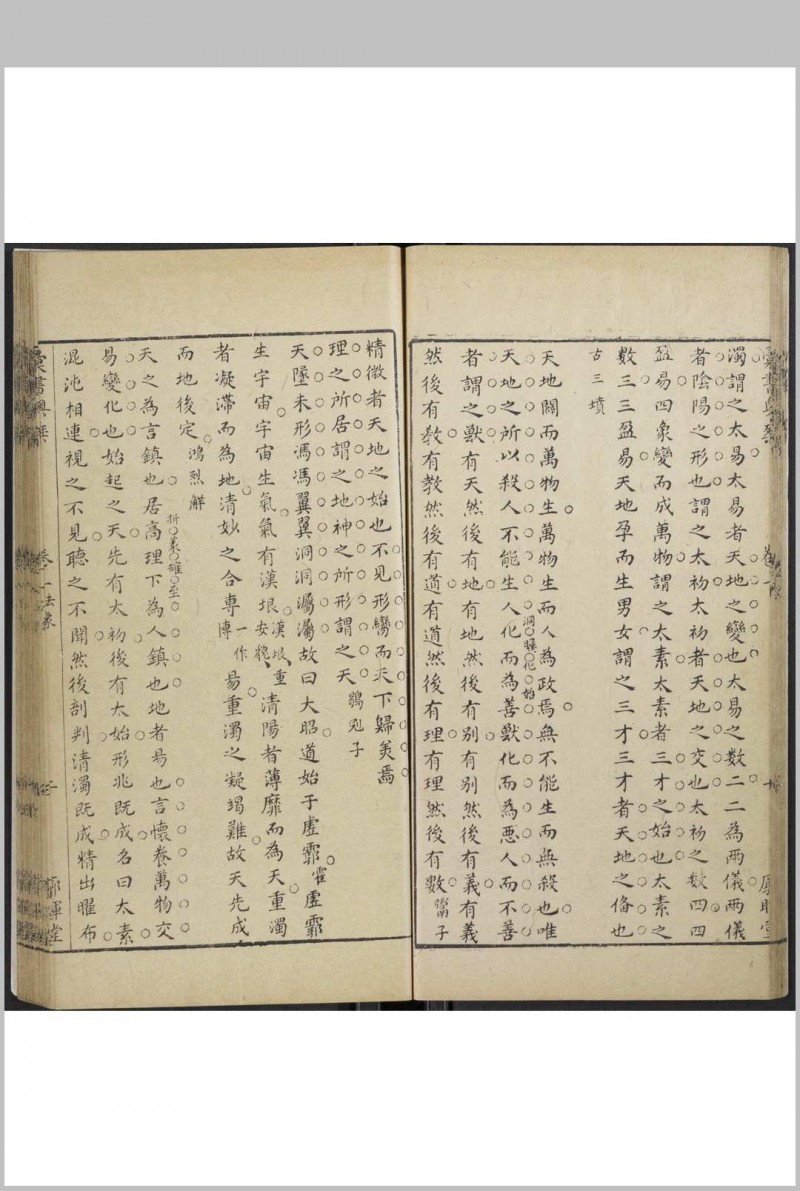 濁謂之太易太易者天地之變也太易之數二二為兩儀兩儀
者陰陽之形也謂之太初太初者天地之交也太初之數四四
盈易四象變而成萬物謂之太素太素者三才之始也太素之
數三三盈易天地孕而生男女謂之三才三才者天地之俻也
古三墳
天地闢而萬物生萬物生而人為政焉無不能生而無殺也唯
天地之所以殺人不能生人化而為善獸化而為惡人而不善
者謂之獸有天然後有地有地然後有別有別然後有義有義
然後有教有教然後有道有道然後有理有理然後有數 鬻子
精微者天地之始也不見形臠而天下歸美焉
理之所居謂之地神之所形謂之天 鶡冠子
天墬未形馮馮翼翼洞洞灟灟故曰大昭道始于虛霩虛霩
生宇宙宇宙生氣氣有漢垠 漢垠重安貌 清陽者薄靡而為天重濁
者凝滯而為地清妙之合專 一作博 易重濁之凝竭難故天先成
而地後定 鴻烈解
天之為言鎮也居高理下為人鎮也地者易也言懷養萬物交
易變化也始起之天先有太初後有太始形兆既成名曰太素
混沌相連視之不見聽之不聞然後剖判清濁既成精出曜布
卷一 法象
二